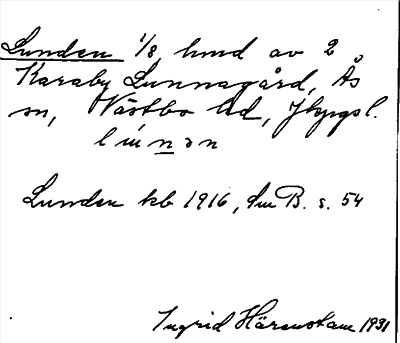 Lunden 1/8 hmd av 2
Karaby Lunnagård, Ås
sn, Västbo hd, Jkpgsl.
l ú n ə n
Lunden kb 1916, Lm B. s. 54
Ingrid Härenstam 1931